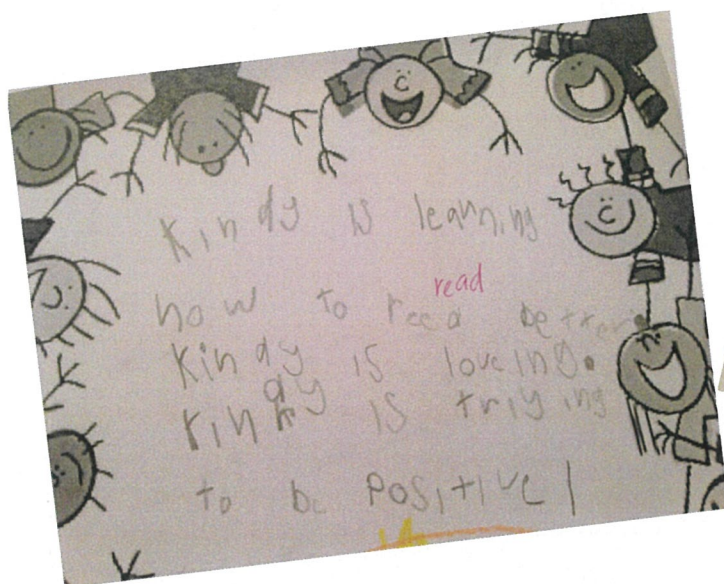 Kindy is learning
read
how to reed better.
Kindy is loveing.
Kindy is triying
to be positive!